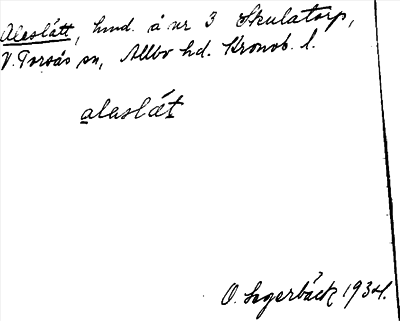 Alaslätt, hmd. å nr 3 Skulatorp,
V. Torsås sn, Allbo hd. Kronob. l.
alaslä́t
O. Segerbäck 1934.